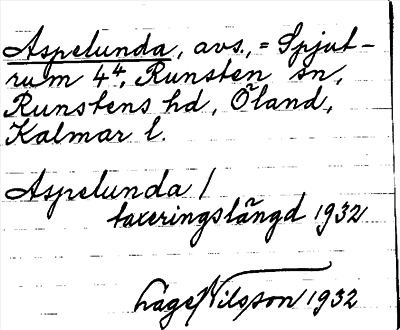 Aspelunda, avs., = Spjut-
rum 4⁴, Runsten sn,
Runstens hd, Öland,
Kalmar l.
Aspelunda /
taxeringslängd 1932
Låge Nilsson 1932